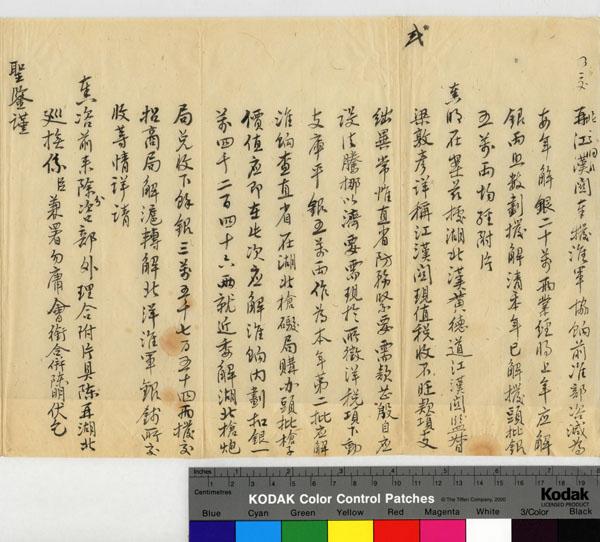 再江漢關奉撥淮軍協餉前准部咨減為
每年解銀二十萬兩業經將上年應解
銀兩照數劃撥解清本年已解撥頭批銀
五萬兩均經附片
奏明在案茲據湖北漢黃德道江漢關監督
梁敦彥詳稱江漢關現值稅收不旺款項支
絀異常惟直省防務緊要需款甚殷自應
設法騰挪以濟要需現於所徵洋稅項下動
支庫平銀五萬兩作為本年第二批應解
淮餉查直省在湖北槍礮局購办頭批槍子
價值應即在此次應解淮餉內劃扣銀一
萬四千二百四十六兩就近委解湖北槍炮
局兌收下餘銀三萬五千七百五十四兩撥交
招商局解滬轉解北洋淮軍銀錢所交
收等情詳請
奏咨前來除分咨部外理合附片具陳再湖北
巡撫係臣兼署勿庸會銜合併陳明伏乞
聖鑒謹
Inches
1 2 3 4 5 6 7 8
Centimetres
1 2 3 4 5 6 7 8 9 10 11 12 13 14 15 16 17 18 19
KODAK Color Control Patches
© The Tiffen Company, 2000
Kodak
LICENSED PRODUCT
Blue Cyan Green Yellow Red Magenta White 3/Color Black